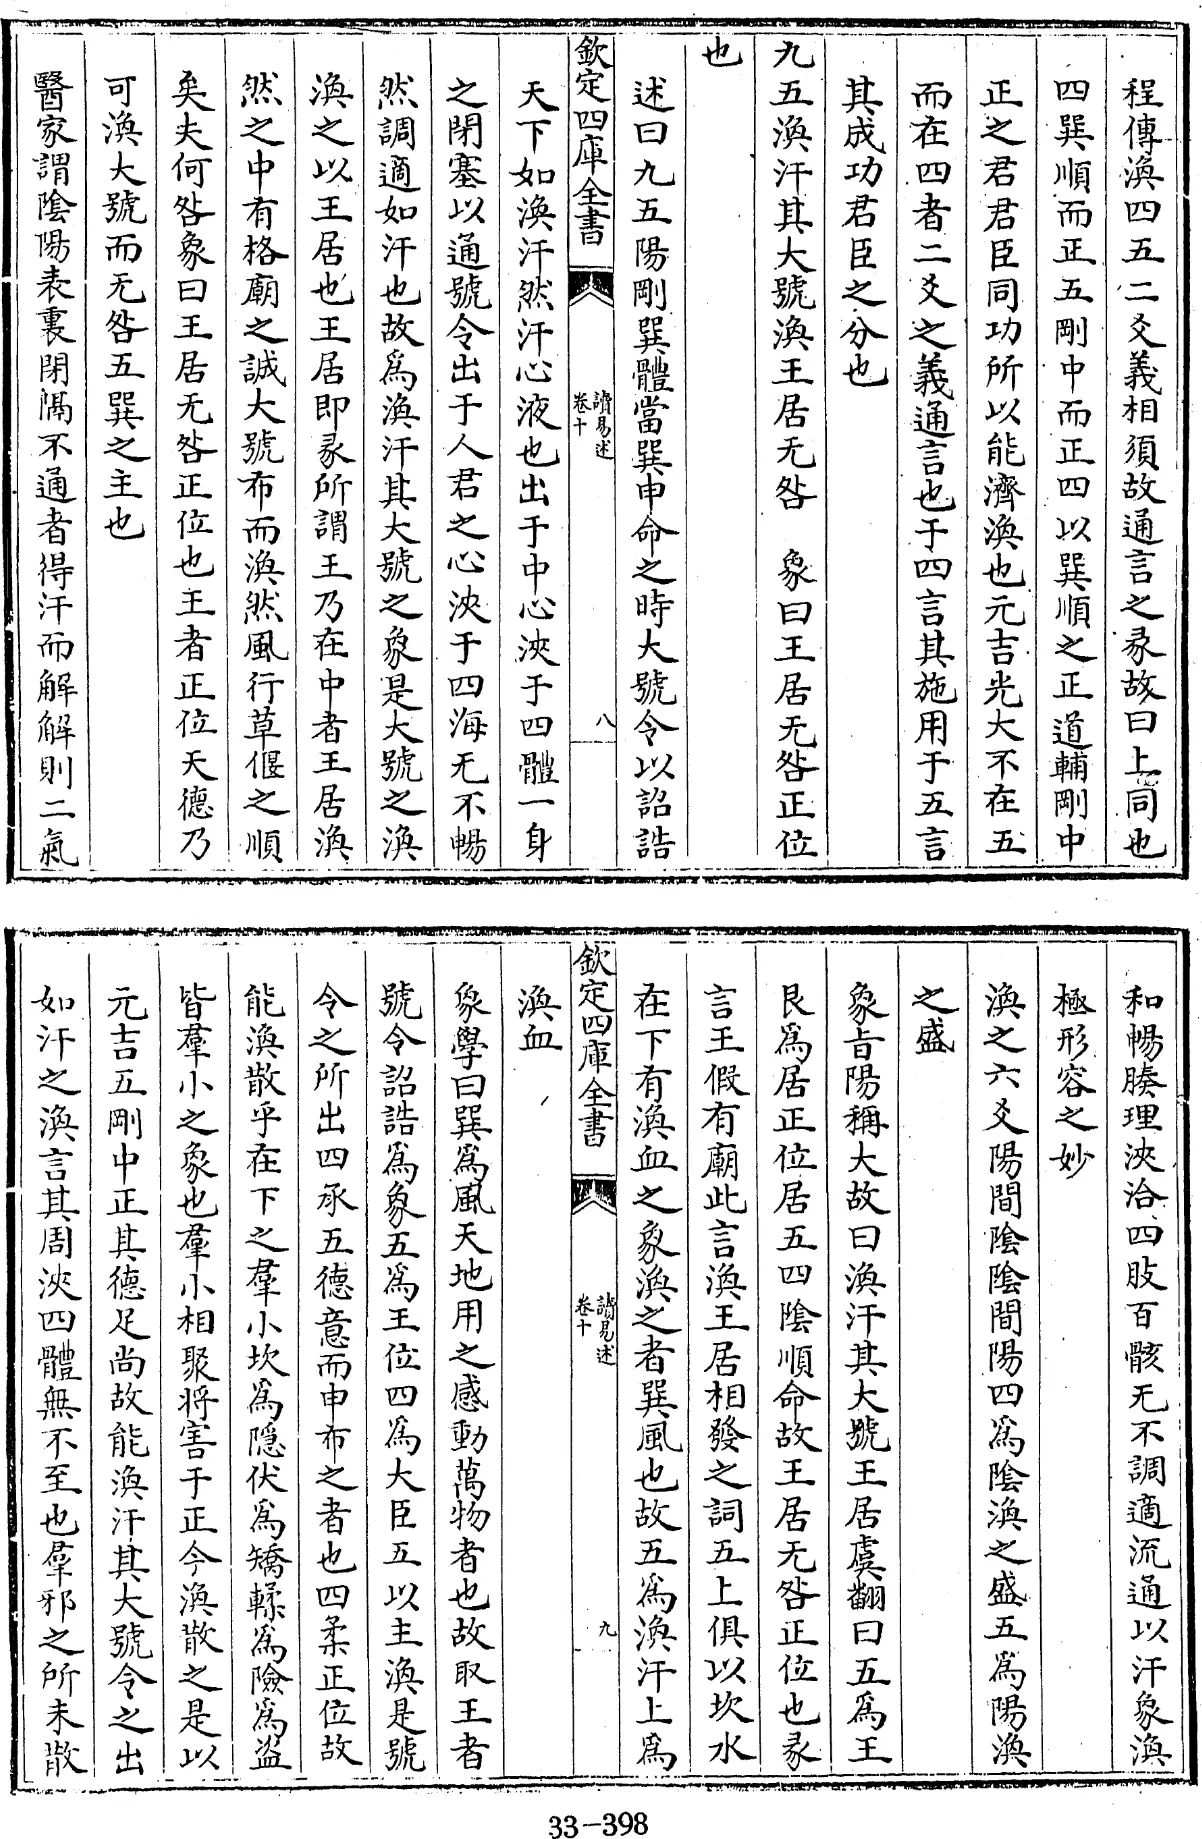 程傳渙四五二爻義相須故通言之彖故曰上同也
四巽順而正五剛中而正四以巽順之正道輔剛中
正之君君臣同功所以能濟渙也元吉光大不在五
而在四者二爻之義通言也于四言其施用于五言
其成功君臣之分也
九五渙汗其大號渙王居无咎　象曰王居无咎正位
也
述曰九五陽剛巽體當巽申命之時大號令以詔誥
欽定四庫全書
讀易述
卷十
八
天下如渙汗然汗心液也出于中心浹于四體一身
之閉塞以通號令出于人君之心浹于四海无不暢
然調適如汗也故爲渙汗其大號之象是大號之渙
渙之以王居也王居即彖所謂王乃在中者王居渙
然之中有格廟之誠大號布而渙然風行草偃之順
矣夫何咎象曰王居无咎正位也王者正位天德乃
可渙大號而无咎五巽之主也
醫家謂陰陽表裏閉隔不通者得汗而解解則二氣
和暢腠理浹洽四肢百骸无不調適流通以汗象渙
極形容之妙
渙之六爻陽間陰陰間陽四爲陰渙之盛五爲陽渙
之盛
象旨陽稱大故曰渙汗其大號王居虞翻曰五爲王
艮爲居正位居五四陰順命故王居无咎正位也彖
言王假有廟此言渙王居相發之詞五上俱以坎水
在下有渙血之象渙之者巽風也故五爲渙汗上爲
欽定四庫全書
讀易述
卷十
九
渙血
象學曰巽爲風天地用之感動萬物者也故取王者
號令詔誥爲象五爲王位四爲大臣五以主渙是號
令之所出四承五德意而申布之者也四柔正位故
能渙散乎在下之羣小坎爲隱伏爲矯輮爲險爲盜
皆羣小之象也羣小相聚將害于正今渙散之是以
元吉五剛中正其德足尚故能渙汗其大號令之出
如汗之渙言其周浹四體無不至也羣邪之所未散
33-398